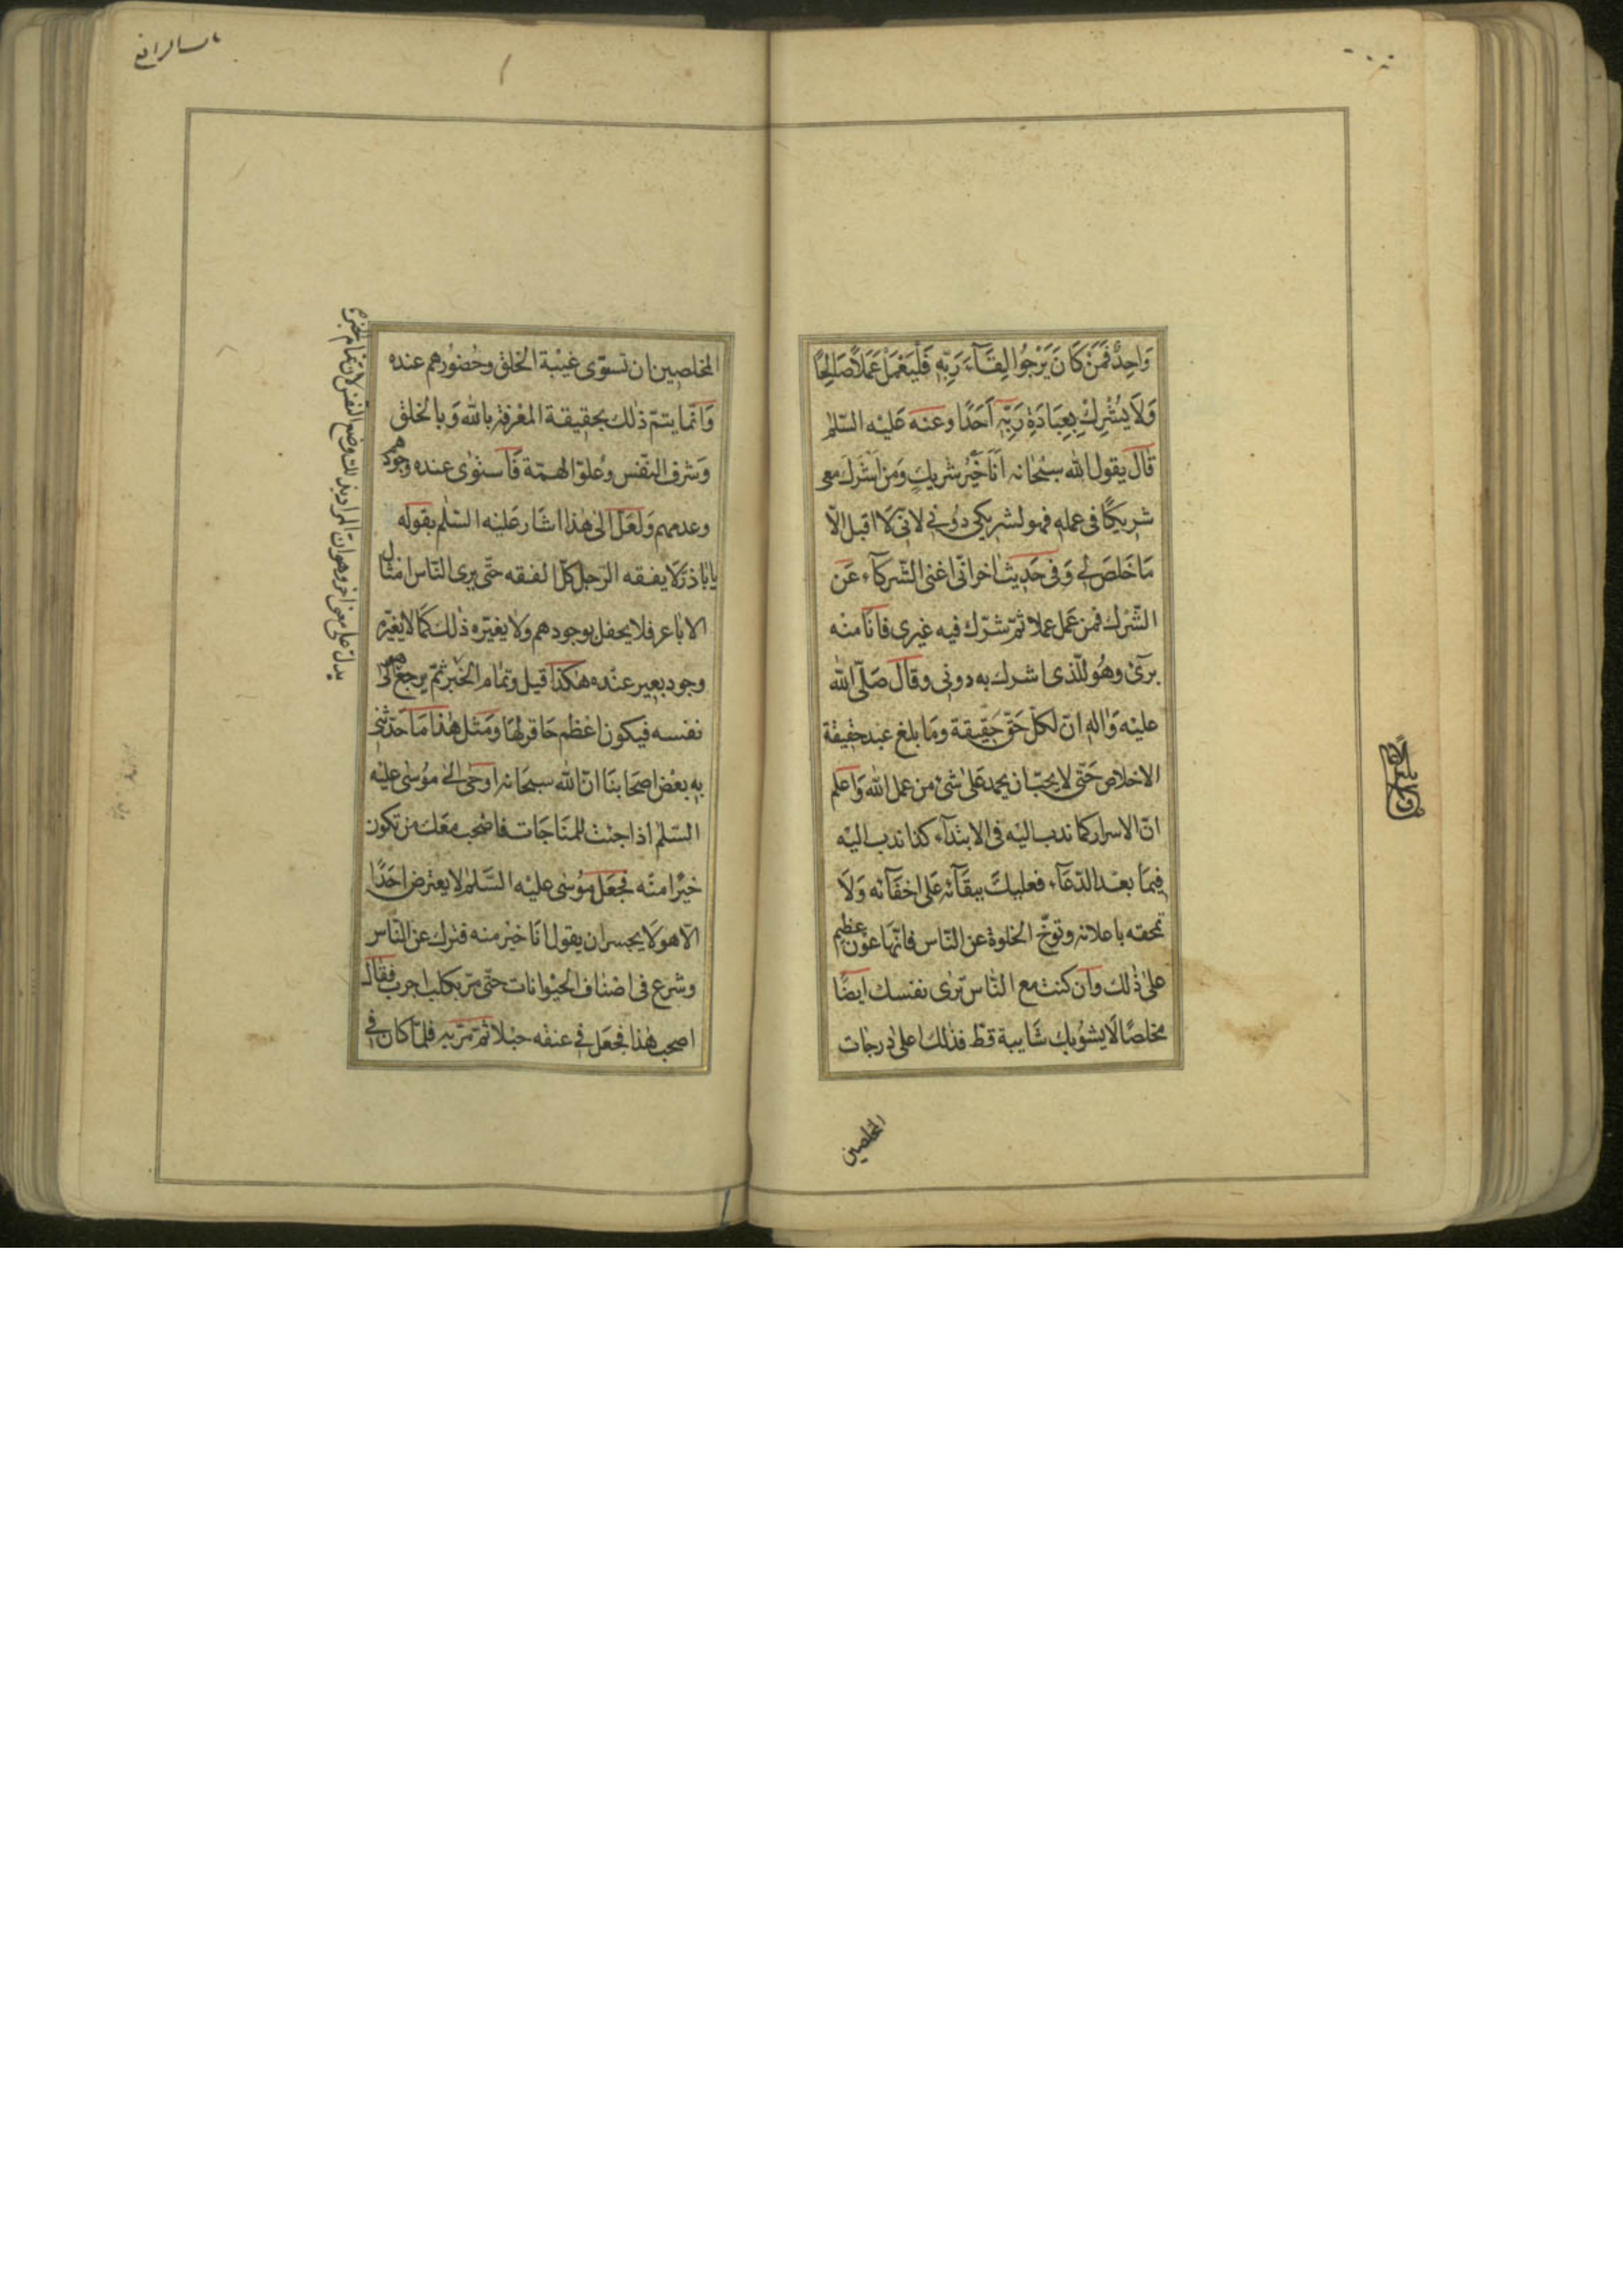 وَاحِدٌ فَمَنْ كَانَ يَرْجُوا لِقَآءَ رَبِّهِ فَلْيَعْمَلْ عَمَلًا صَالِحًا
وَلَا يُشْرِكْ بِعِبَادَةِ رَبِّهِ اَحَدًا وعنه عَليْه السّلم
قال يقول الله سبْحانه اَنَا خَيْرُ شريكٍ وَمن اَشْرَك معى
شريكًا فى عمله فهو لشريكى دُونى لانّى لَا اقبل الّا
مَا خَلصَ لى وَفى حَديث اخر انّى اغنى الشّركآء عَن
الشّرْك فمن عَمل عملا ثمّ شرّك فيه غيرى فانَا منْه
برئ وهُو للّذى اشرك به دونى وقال صَلّى الله
عليْه وَاله انّ لكلّ حَقّ حَقيقة ومَا بلغ عبْد حقيقة
الاخلاص حَتّى لا يحبّ ان يحمد عَلى شئ من عمل الله وَاعلم
انّ الاسرار كما ندب اليْه فى الابتدآء كذا ندب اليْه
فيمَا بعْد الدّعآء فعليك ببقآئه عَلى اخفآئه وَلَا
تمحقه باعلانه وتوخّ الخلوة عن النّاس فانّها عوْن عظيم
على ذلك وَان كنت مع النّاس ترى نفسك ايضًا
مخلصًا لَا يشوبك شَايبة قطّ فذلك اعلى درجات
المخلصين
المخلصين ان تستوى غيْبة الخلق وحُضوُرهم عنده
وَانّما يتمّ ذلك بحقيقة المعْرفة بالله وَبالخلق
وَشرف النّفس وعُلوّ الهمّة فَاستوٰى عنده وجودهم
وعدمهم وَلَعَلّ الى هٰذا اشَار عَليْه السّلٰم بقوله
يا اباذر لَا يفقه الرّجل كلّ الفقه حتّى يرى النّاس امثال
الاباعر فلا يحفل بوجودهم وَلا يغيّره ذٰلك كمَا لا يغيّره
وجود بعير عنْده هٰكذا قيل وتمام الخبر ثمّ يرجع هو الى
نفسه فيكون اعْظم حَاقر لهَا وَمثل هٰذا مَا حَدّثنى
به بعْض اصحَابنَا انّ الله سبحَانه اوحٰى الى مُوسى عليْه
السّلم اذا جئت للمنَاجَات فاصْحب معَك من تكون
خيْرًا منْه فجَعَل مُوسٰى عليْه السَّلم لا يعترض احَدًا
الّا هو لَا يجسر ان يقول انَا خيْر منه فنزل عن النّاس
وشرع فى اصْناف الحيْوانات حتّى مرّ بكلب اجرب فقال
اصحب هٰذا فجعَل فى عنقه حبْلا ثمّ مرّ به فلمّا كان فى